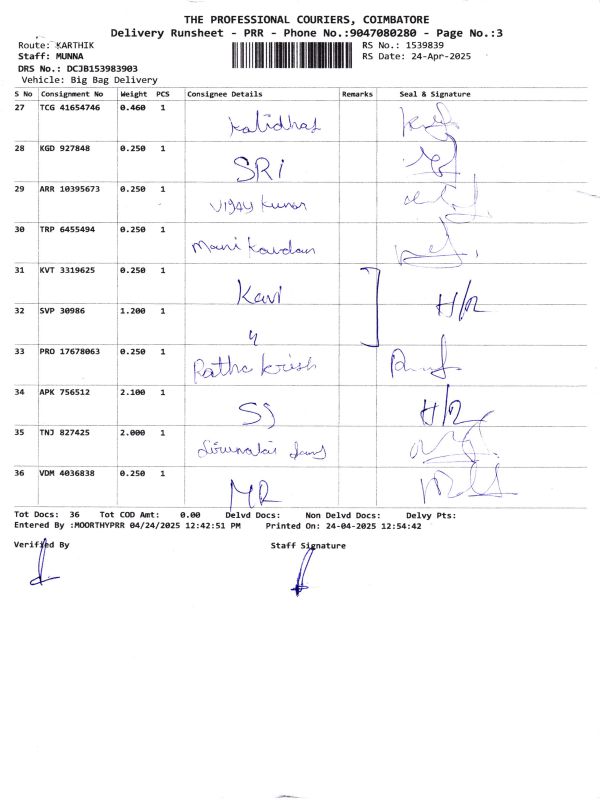 THE PROFESSIONAL COURIERS, COIMBATORE
Delivery Runsheet - PRR - Phone No.:9047080280 - Page No.:3
Route: KARTHIK RS No.: 1539839
Staff: MUNNA RS Date: 24-Apr-2025
DRS No.: DCJB153983903
Vehicle: Big Bag Delivery
S No Consignment No Weight PCS Consignee Details Remarks Seal & Signature
27 TCG 41654746 0.460 1 Kalidhas
28 KGD 927848 0.250 1 SRI
29 ARR 10395673 0.250 1 Vijay Kumar
30 TRP 6455494 0.250 1 Mani Kandan
31 KVT 3319625 0.250 1 Kavi H/R
32 SVP 30986 1.200 1 "
33 PRO 17678063 0.250 1 Ratha Krish
34 APK 756512 2.100 1 SJ H/R
35 TNJ 827425 2.000 1
36 VDM 4036838 0.250 1 MR
Tot Docs: 36 Tot COD Amt: 0.00 Delvd Docs: Non Delvd Docs: Delvy Pts:
Entered By :MOORTHYPRR 04/24/2025 12:42:51 PM Printed On: 24-04-2025 12:54:42
Verified By Staff Signature